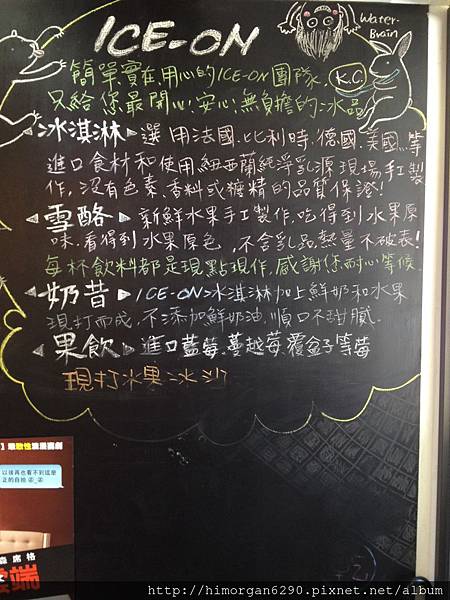 ICE-ON
Water-
Brain
K.C.
簡單實在用心的ICE-ON團隊
只給您最開心!安心!無負擔的冰品
冰淇淋 選用法國.比利時.德國.美國..等
進口食材和使用紐西蘭純淨乳源現場手工製
作,沒有色素.香料或糖精的品質保證!
雪酪 新鮮水果手工製作,吃得到水果原
味.看得到水果原色,不含乳品.熱量不破表!
每杯飲料都是現點現作,感謝您耐心等候
奶昔 ICE-ON冰淇淋加上鮮奶和水果
現打而成,不添加鮮奶油,順口不甜膩.
果飲 進口藍莓.蔓越莓.覆盆子等莓
現打水果冰沙
以後再也看不到這麼
正的自拍
森席格
雲端
http://himorgan6290.pixnet.net/album